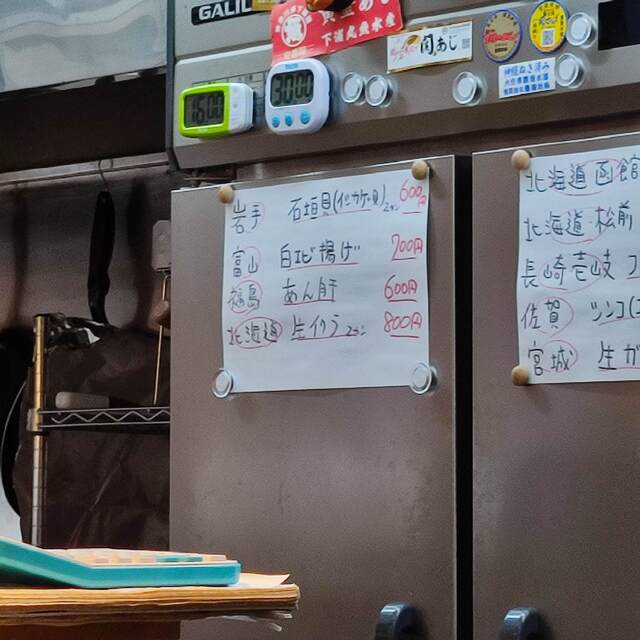 GALIL
下浦見島水産
関あじ
16:00
00:00
岩手 石垣貝(イシガケ貝)2コン 600円
富山 白エビ揚げ 700円
福島 あん肝 600円
北海道 生イクラ 2コン 800円
北海道 函館
北海道 松前
長崎壱岐
佐賀 ツンコ(
宮城 生ガ